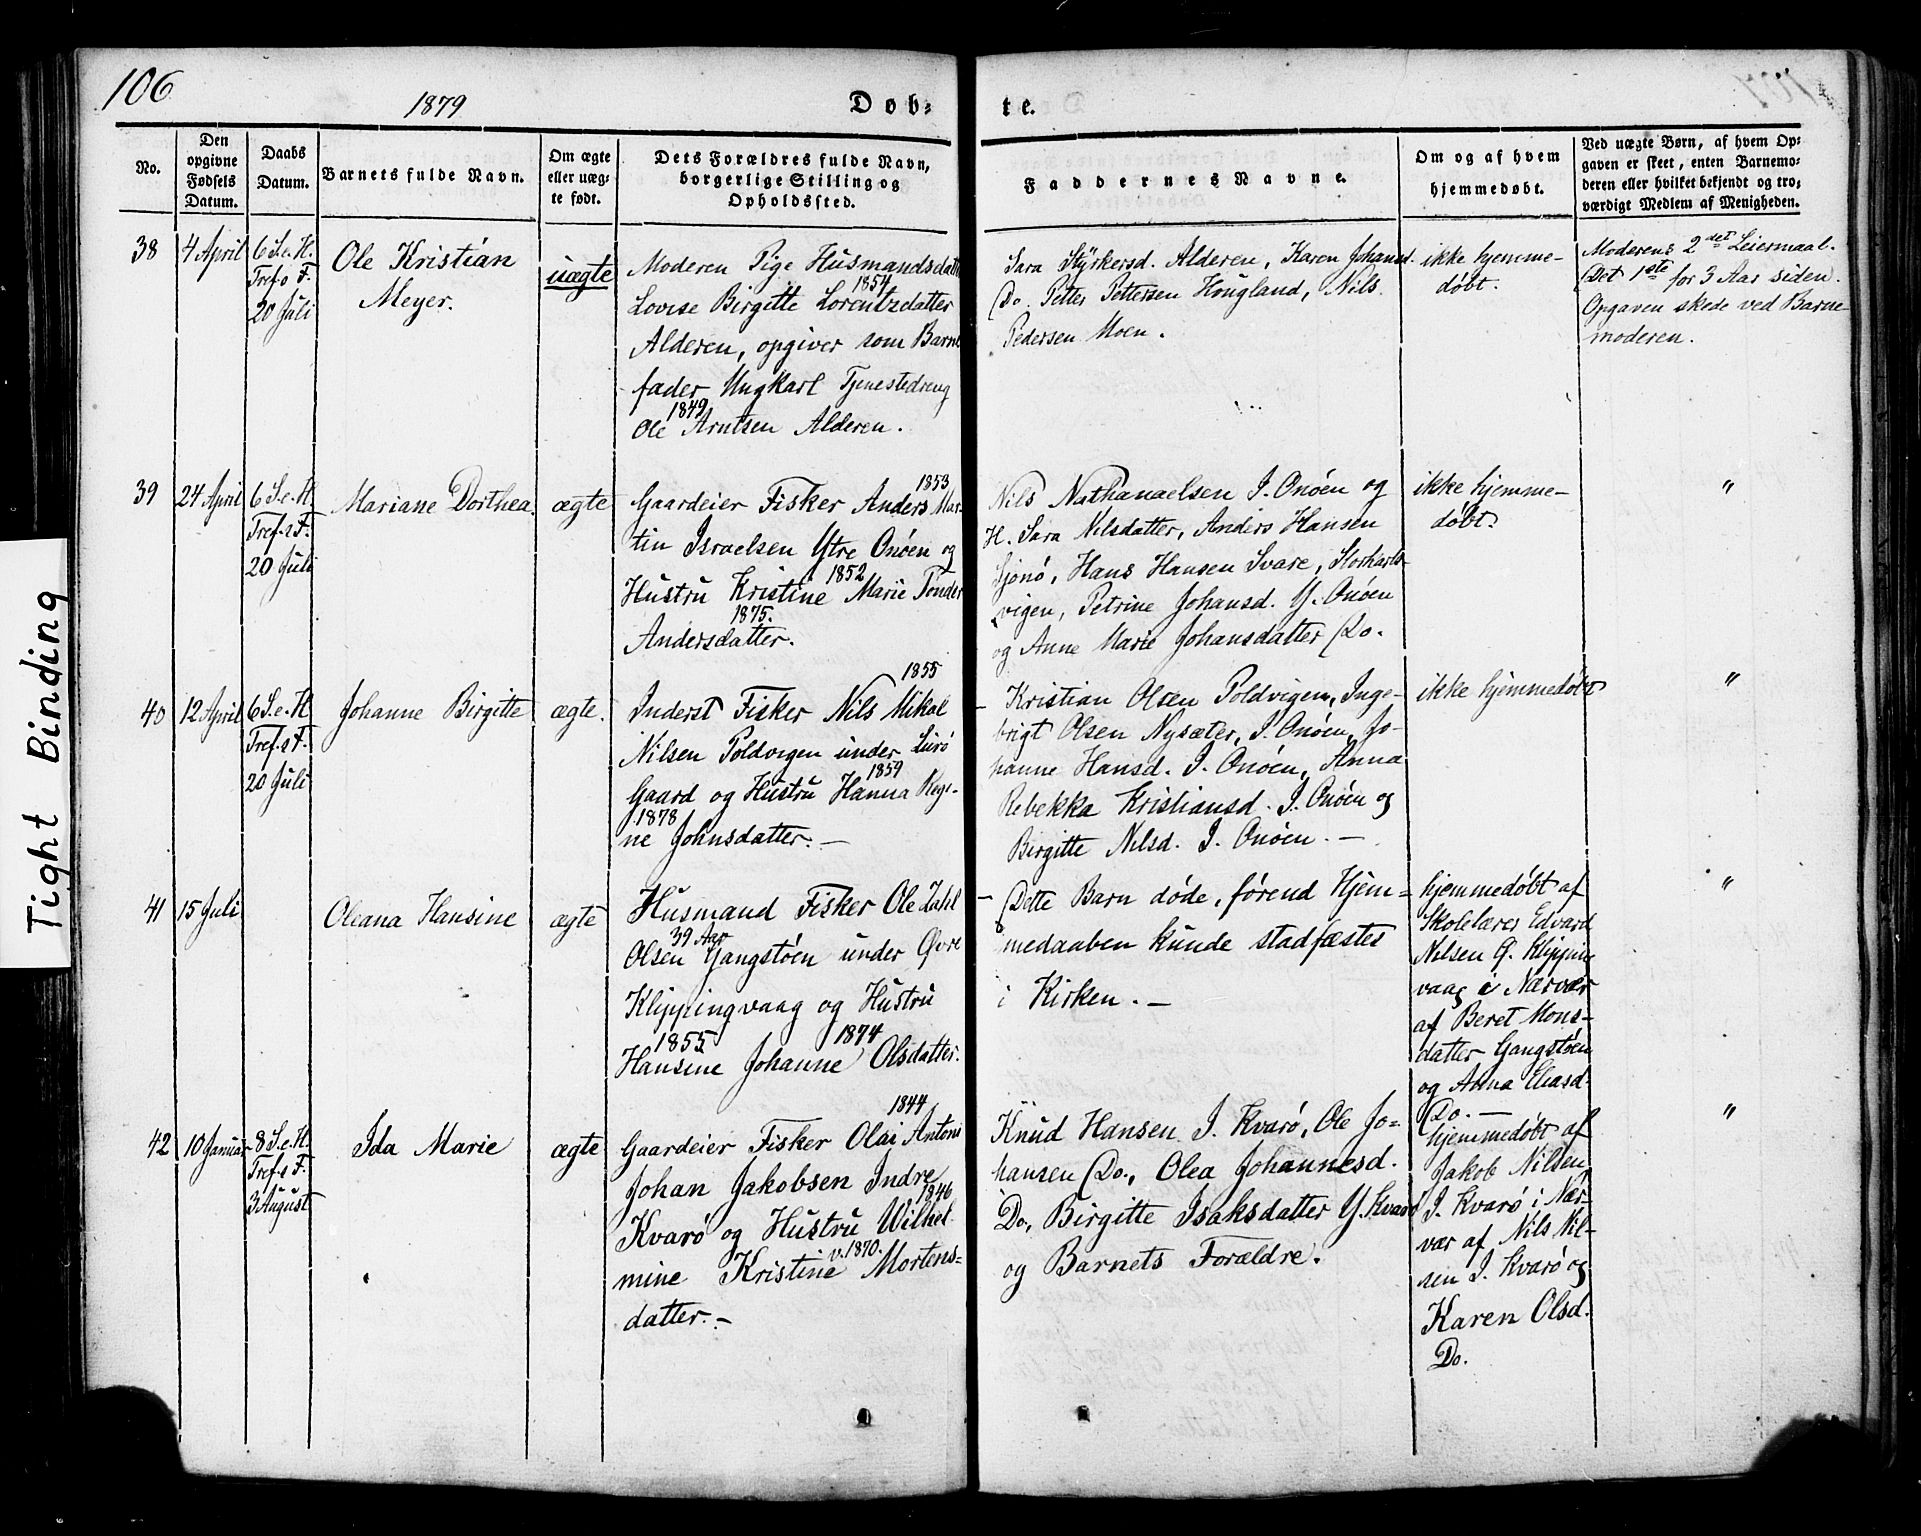 106
1879
Døb-
te.
No.
Den
opgivne
Fødsels
Datum.
Daabs
Datum.
Barnets fulde Navn.
Om ægte
eller uæg-
te født.
Dets Forældres fulde Navn,
borgerlige Stilling og
Opholdssted.
Faddernes Navne.
Om og af hvem
hjemmedøbt.
Ved uægte Børn, af hvem Op-
gaven er skeet, enten Barnemo-
deren eller hvilket bekjendt og tro-
værdigt Medlem af Menigheden.
38
4 April
6 S. e. H.
Tref. F.
20 Juli
Ole Kristian
Meyer.
uægte
Moderen Pige Husmandsdatt
1854
Lovise Birgitte Lorentzdatter
Alderen, opgiver som Barne
fader Ungkarl Tjenestedreng
1849
Ole Arntsen Alderen.
Sara Styrkersd. Alderen, Karen Johansd.
Do. Petter Pettersen Hougland, Nils
Pedersen Moen.
ikke hjemme-
døbt.
Moderens 2det Leiermaal.
Det 1ste for 3 Aar siden.
Opgaven skede ved Barne-
moderen.
39
24 April
6 S. e. H.
Tref. s F.
20 Juli
Mariane Dorthea.
ægte
1853
Gaardeier Fisker Anders Mar-
tin Israelsen Ytre Onøen og
1852
Hustru Kristine Marie Tønder
1875.
Andersdatter.
Nils Nathanaelsen I. Onøen og
H. Sara Nilsdatter, Anders Hansen
Sjonø, Hans Hansen Svare, Storharls-
vigen, Petrine Johansd. Y. Onøen
og Anne Marie Johansdatter Do.
ikke hjemme-
døbt.
"
40
12 April
6 S. e. H.
Tref. s F.
20 Juli
Johanne Birgitte
ægte.
1855
Inderst Fisker Nils Mikal
Nilsen Poldvigen under Lurø
1859
Gaard og Hustru Hanna Regi-
1878
ne Johnsdatter. -
Kristian Olsen Poldvigen, Inge-
brigt Olsen Nysæter, I. Onøen, Jo-
hanne Hansd. I. Onøen, Anna
Rebekka Kristiansd. I. Onøen og
Birgitte Nilsd. I. Onøen. -
ikke hjemmedøbt
"
41
15 Juli
Oleana Hansine
ægte
Husmand Fisker Ole Zahl
39 Aar
Olsen Gangstøen under Øvre
Klippingvaag og Hustru
1855 1874
Hansine Johanne Olsdatter.
- Dette Barn døde, førend Hjem-
medaaben kunde stadfæstes
i Kirken. -
hjemmedøbt af
Skolelærer Edvard
Nilsen Ø. Klipping
vaag i Nærvær
af Beret Mons-
datter Gangstøen
og Anna Eliasd.
Do. -
"
42
10 Januar
8 S. e. H.
Tref. s F.
3 August
Ida Marie
ægte
1844
Gaardeier Fisker Olai Antoni
Johan Jakobsen Indre
1846
Kvarø og Hustru Wilhel-
v. 1870.
mine Kristine Mortens-
datter. -
Knud Hansen I. Kvarø, Ole Jo-
hansen Do., Olea Johannesd.
Do, Birgitte Isaksdatter Y. Kvarø
og Barnets Forældre.
hjemmedøbt af
Jakob Nilsen
I. Kvarø i Nær-
vær af Nils Nil-
sen I. Kvarø og
Karen Olsd.
Do.
"
Tight Binding